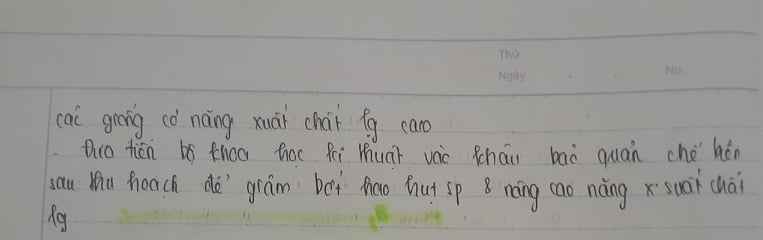 Thứ
Ngày No.
các giống có năng xuất chất lg cao
- Đưa tiến bộ khoa học kĩ thuật vào khâu bảo quản chế biến
sau thu hoạch để giảm bớt hao hụt sp & nâng cao năng xuất chất
lg